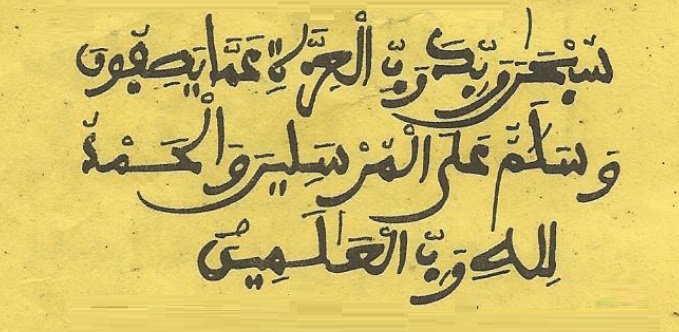 سُبْحَٰنَ رَبِّكَ رَبِّ الْعِزَّةِ عَمَّا يَصِفُونَ
وَسَلَٰمٌ عَلَى الْمُرْسَلِينَ وَالْحَمْدُ
لِلهِ رَبِّ الْعَٰلَمِينَ